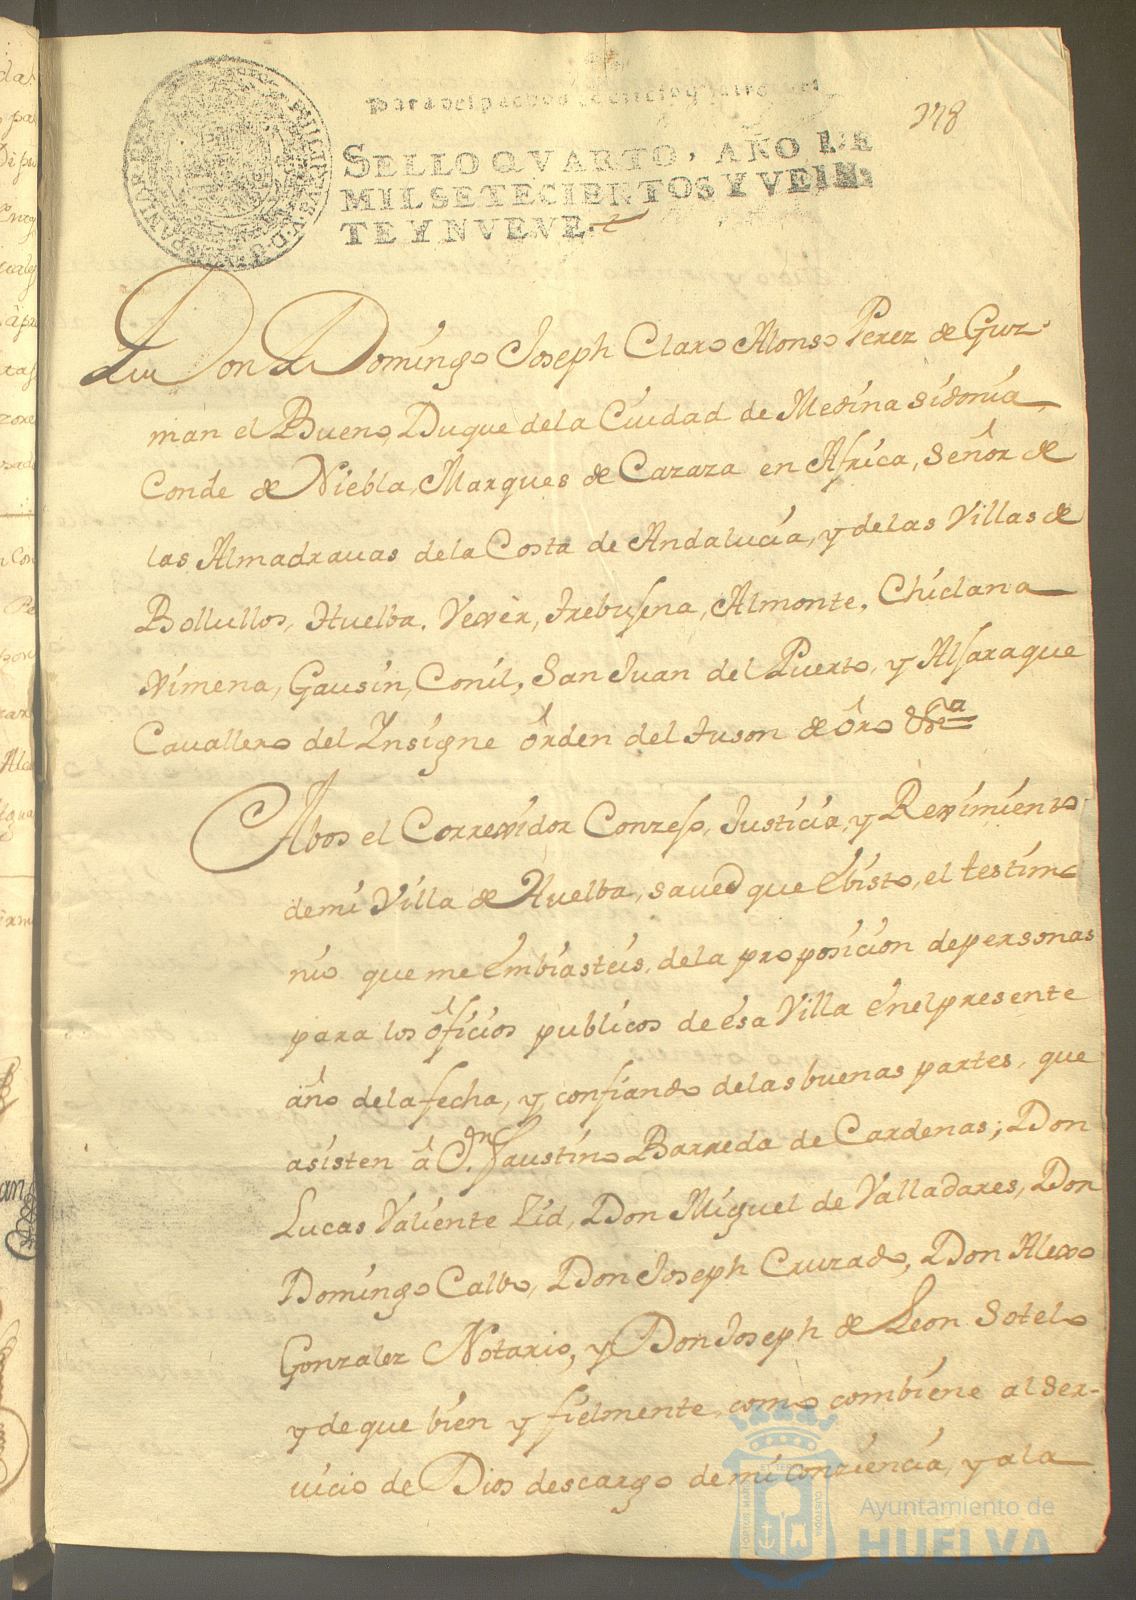 para despachos de oficio quatro mrs
178
SELLO QVARTO, AÑO DE
MIL SETECIENTOS Y VEIN
TE Y NVEVE.
Don Domingo Joseph Claro Alonso Perez de Guz
man el Bueno, Duque dela Ciudad de Medina sidonia
Conde de Niebla, Marques de Cazaza en Africa, señor de
las Almadrauas dela Costa de Andalucia, y delas Villas de
Bollullos, Huelba, Vexèr, Trebujena, Almonte, Chiclana
Ximena, Gausin, Conil, San Juan del Puerto, y Aljaraque
Cauallero del Ynsigne òrden del tuson de òro &ca
Abos el Correxidor Conzejo, Justicia, y Reximiento
demi Villa de Huelba, saued que è bisto, el testimo
nio que me èmbiasteis, dela proposicion depersonas
para los òficios publicos de èsa Villa ènel presente
año dela fecha, y confiando delas buenas partes, que
asisten â Dn. Faustino Barreda de Cardenas; Don
Lucas Valiente Zid, Don Miguel de Valladares, Don
Domingo Calbo, Don Joseph Cruzado, Don Alexo
Gonzalez Notario, y Don Joseph de Leon Sotelo
y de que bien y fielmente, como combiene al Ser-
uicio de Dios descargo de mi conziencia, y a la
Ayuntamiento de
HUELVA
PORTUS MARIS
ET TERRAE
CUSTODIA